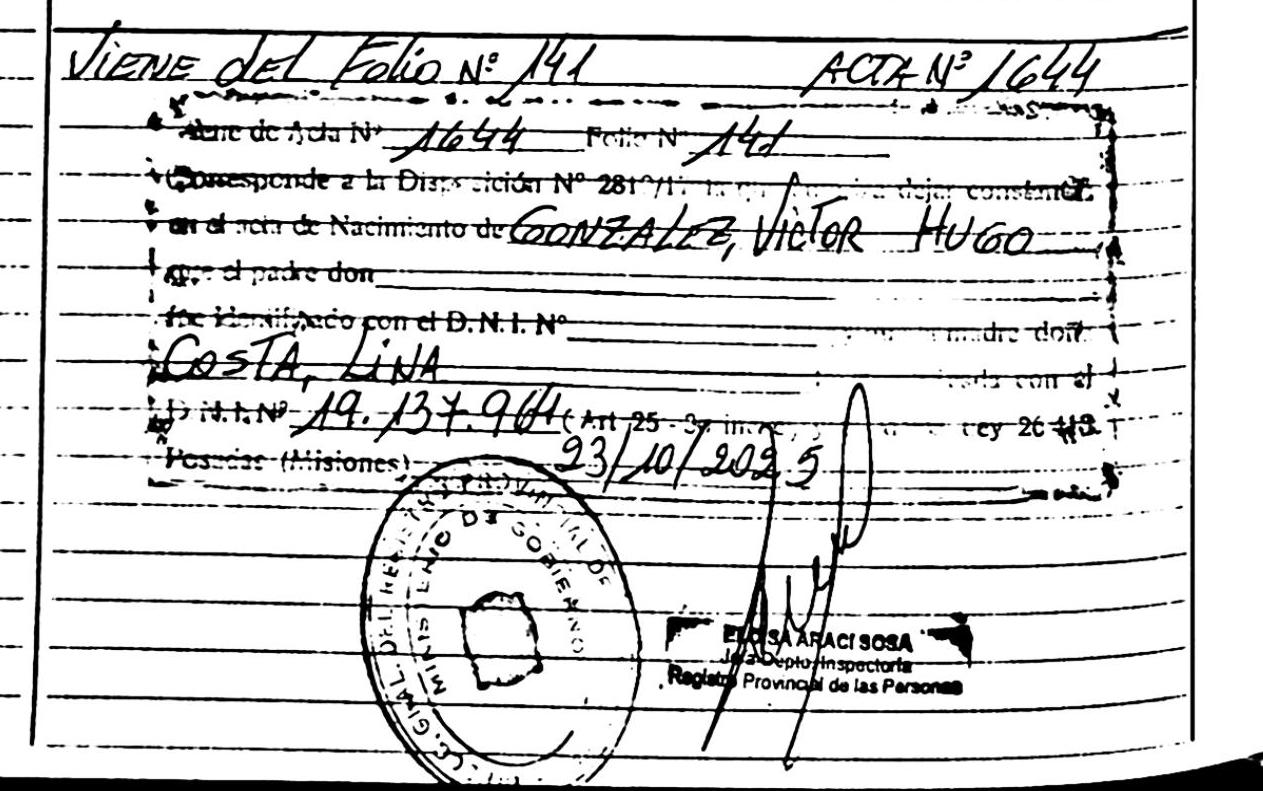 VIENE del Folio Nº 141 ACTA Nº 1644
Viene de Acta Nº 1644 Folio Nº 141
Corresponde a la Disposición Nº dejar constancia
en el acta de Nacimiento de GONZALEZ, VICTOR HUGO
que el padre don
fue identificado con el D. N. I. Nº madre doña
COSTA, LINA con el
D. N. I. Nº 19.137.964 (Art 25 Ley 26.413
Posadas (Misiones) 23/10/2025
REGISTRO PROVINCIAL DE
MINISTERIO DE GOBIERNO
ELOISA ARACI SOSA
Jefa Depto. Inspectoría
Registro Provincial de las Personas